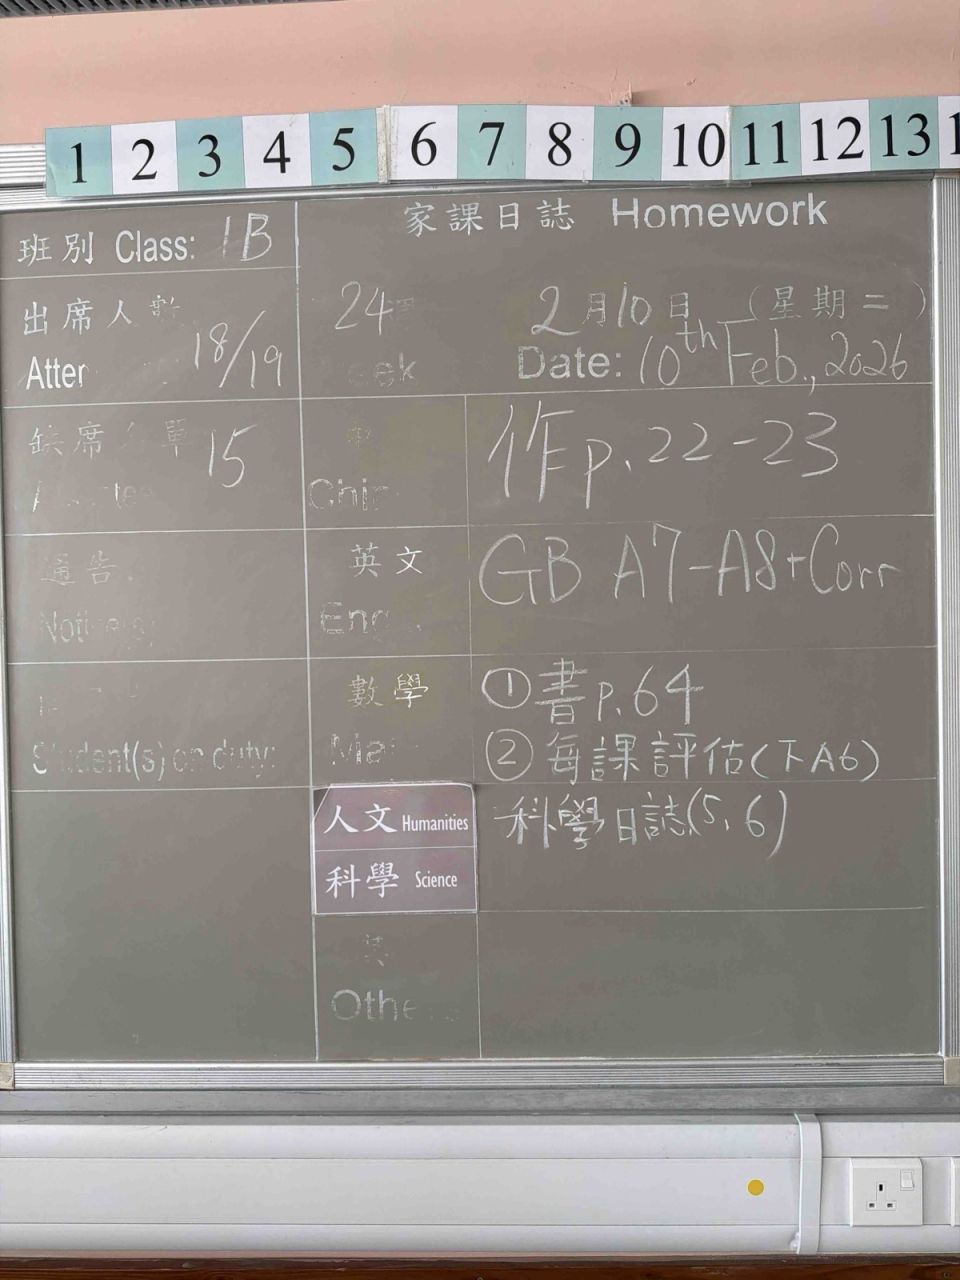 1 2 3 4 5 6 7 8 9 10 11 12 13
班別 Class: 1B
家課日誌 Homework
出席人數
Atter
18/19
24
eek
2月10日 (星期二)
Date: 10th Feb., 2026
缺席名單 15
Chin
作 p.22-23
通告:
Notice(s)
英文
Eng
GB A7-A8+Corr
Student(s) on duty:
數學
Mat
①書p.64
②每課評估(下A6)
人文 Humanities
科學 Science
科學日誌(5、6)
其
Othe